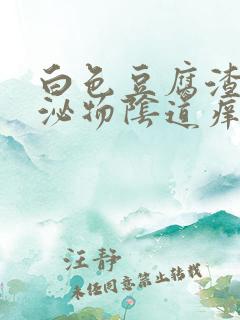 白色豆腐渣
泌物陰道痒
汪静
未经同意禁止转载